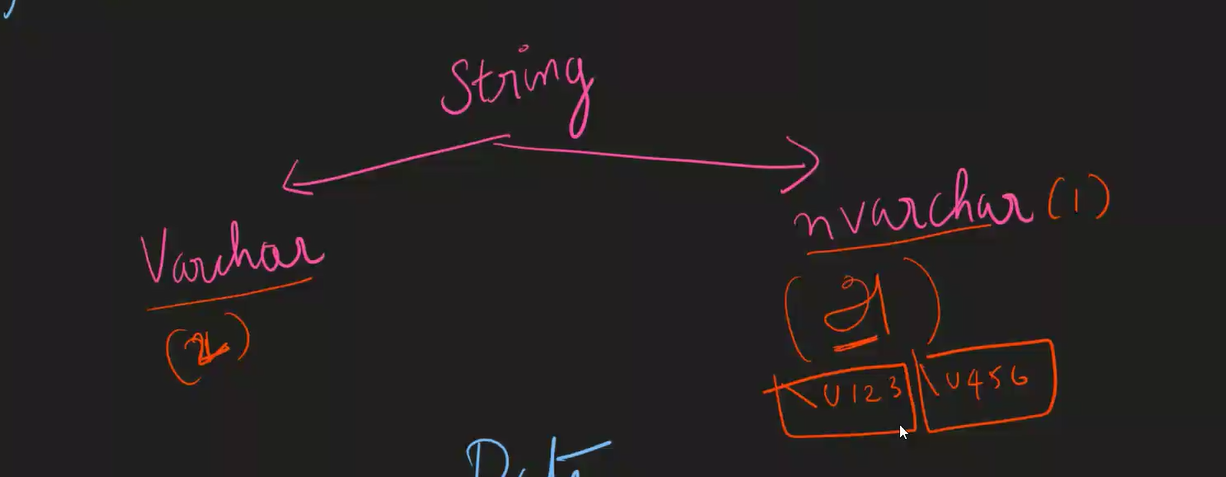 String
Varchar
nvarchar (1)
(அ)
\U123 \U456
Date